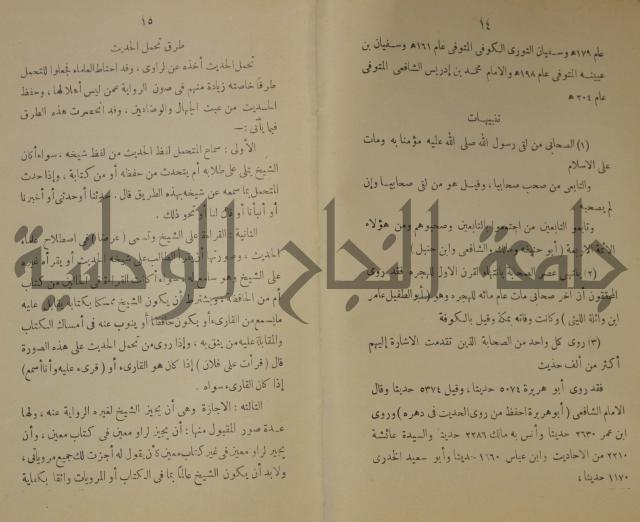 ١٤
عام ١٧٩ﻫ وسفيان الثورى الكوفى المتوفى عام ١٦١ﻫ وسفيان بن
عيينه المتوفى عام ١٩٨ﻫ والامام محمد بن إدريس الشافعى المتوفى
عام ٢٠٤ ﻫ
تنبيهات
(١) الصحابى من لقى رسول الله صلى الله عليه مؤمنا به ومات
على الاسلام
والتابعى من صحب صحابيا، وقيل هو من لقى صحابيا وإن
لم يصحبه
وتابعو التابعين من اجتمعوا بالتابعين وصحبوهم ومن هؤلاء
الائمة الاربعة (أبو حنيفه ومالك والشافعى وابن حنبل)
(٢) ينتهى عصر الصحابة بانتهاء القرن الاول للهجره فقد روى
المحققون أن آخر صحابى مات عام مائه للهجره وهو (أبو الطفيل عامر
ابن واثلة الليثى) وكانت وفاته بمكة وقيل بالكوفة
(٣) روى كل واحد من الصحابة الذين تقدمت الاشارة إليهم
أكثر من ألف حديث
فقد روى أبو هريرة ٥٠٧٤ حديثا، وقيل ٥٣٧٤ حديثا وقال
الامام الشافعى (أبو هريرة احفظ من روى الحديث فى دهره) وروى
ابن عمر ٢٦٣٠ حديثا وأنس به مالك ٢٢٨٦ حديثا والسيدة عائشة
٢٢١٠ من الاحاديث وابن عباس ١٦٦٠ حديثا وأبو سعيد الخدرى
١١٧٠ حديثا،
١٥
طرق تحمل الحديث
تحمل الحديث أخذه عن الراوى، وقد احتاط العلماء فجعلوا للتحمل
طرقا خاصته زيادة منهم فى صون الرواية عمن ليس أهلا لها، وحفظ
الحديث من عبث الجهال والوضاعين، وقد انحصرت هذه الطرق
فيما يأتى :—
الأولى : سماع المتحمل لفظ الحديث من لفظ شيخه، سواء أكان
الشيخ يملى على طلابه أم يتحدث من حفظه أو من كتابة، وإذا حدث
المتحمل بما سمعه عن شيخه بهذه الطريق قال. حدثنا أو حدثنى أو أخبرنا
أو أنبأنا أو قال لنا أو نحو ذلك.
الثانية : القراءة على الشيخ وتسمى (عرضا) فى اصطلاح علماء
الحديث، وصورتها أن يقرأ الطالب على شيخه الحديث أو يقرأه غيره
على الشيخ وهو سامع، سواء أكانت القراءة فى الحالين من كتاب
أم من الحافظه، ويشترط أن يكون الشيخ ممسكا بكتابه يقابل عليه
ما يسمع من القارىء أو يكون حافظا أو ينوب عنه فى امساك الكتاب
والمقابلة عليه من يثق به، وإذا روى من تحمل الحديث على هذه الصورة
قال (قرأت على فلان) إذا كان هو القارىء أو (قرىء عليه وأنا أسمع)
إذا كان القارىء سواه.
الثالثه : الاجازة وهى أن يجيز الشيخ لغيره الرواية عنه، ولها
عدة صور المقبول منها : أن يجيز لراو معين فى كتاب معين، وأن
يجيز لراو معين فى غير كتاب معين كأن يقول له أجزت لك جميع مروياتى،
ولابد أن يكون الشيخ عالما بما فى الكتاب أو المرويات واثقا بكفاية
جامعة النجاح الوطنية